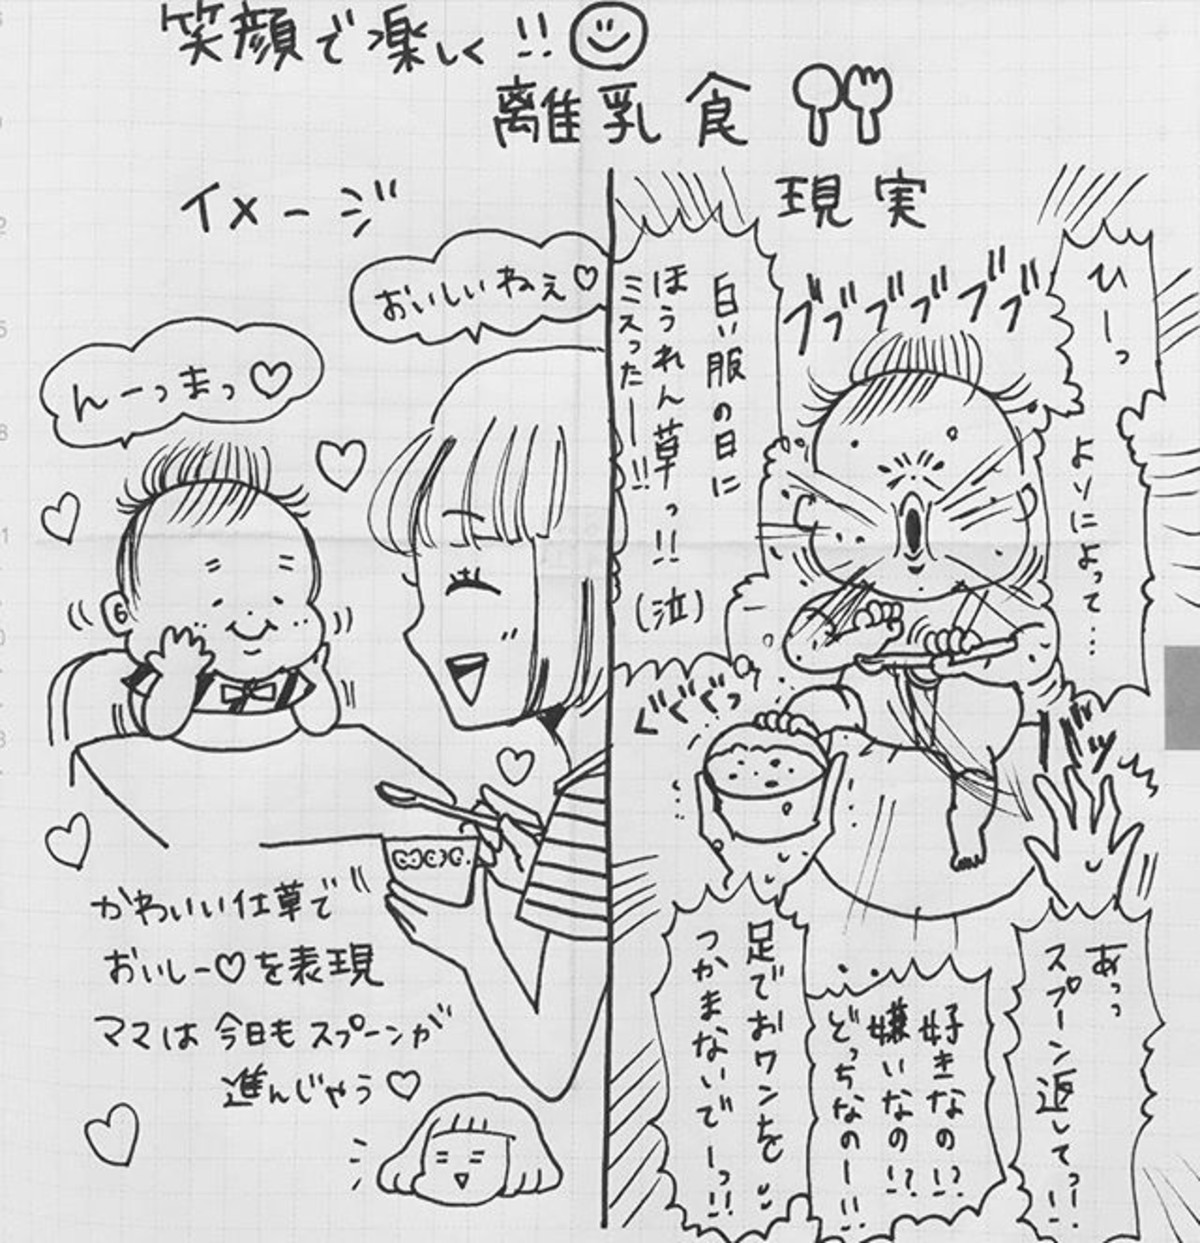 笑顔で楽しく!!
離乳食
イメージ
おいしいねぇ♡
んーっまっ♡
かわいい仕草で
おいしー♡を表現
ママは今日もスプーンが
進んじゃう♡
現実
ひーっ
よりによって…
ブブブブブブ
白い服の日に
ほうれん草っ!!
ミスったー!!
(泣)
ぐぐぐっ
ガッ
あっっ
スプーン返してっー!
好きなの!?
嫌いなの!?
どっちなのー!!
足でおワンを
つかまないでーっ!!